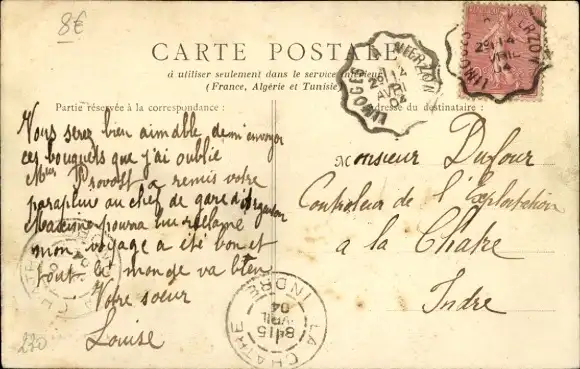 8€
CARTE POSTALE
à utiliser seulement dans le service intérieur
(France, Algérie et Tunisie)
Partie réservée à la correspondance :
Adresse du destinataire :
Vous serez bien aimable de m'envoyer
ces bouquets que j'ai oublié
Mme Provost a remis votre
parapluie au chef de gare d'Argenton
Madame pourra lui réclamer
mon voyage a été bon et
tout le monde va bien
Votre sœur
Louise
Monsieur Dufour
Controleur de l'Exploitation
a la Chatre
Indre
LIMOGES A VIERZON
29 14
AVRIL
04
LIMOGES VIERZON
29 14
AVRIL
04
LA CHATRE
8 15
AVRIL
04
INDRE
270